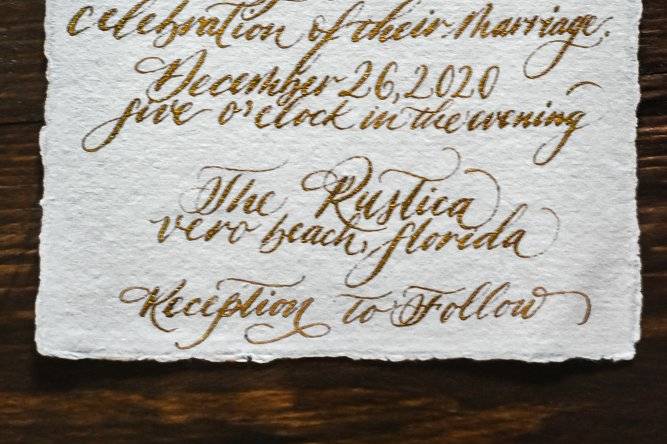 celebration of their Marriage.
December 26, 2020
five o'clock in the evening
The Rustica
vero beach, florida
Reception to Follow